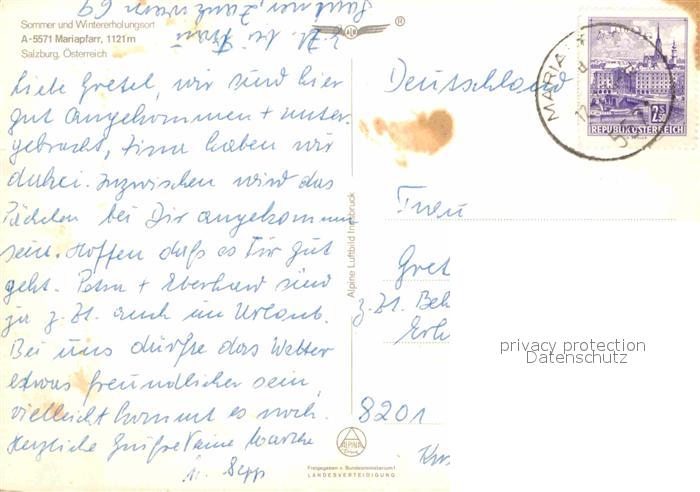 Sommer und Wintererholungsort
A-5571 Mariapfarr, 1121m
Salzburg, Österreich
Liebe Gretel, wir sind hier
gut angekommen + unter-
gebracht, Timm haben wir
dabei. Inzwischen wird das
Päckchen bei Dir angekommen
sein. Hoffen daß es Dir gut
geht. Petra + Eberhard sind
ja z. Zt. auch im Urlaub.
Bei uns dürfte das Wetter
etwas freundlicher sein,
vielleicht kommt es noch.
Herzliche Grüße Deine
u. Sepp
Alpine Luftbild Innsbruck
ALPINE
Freigegeben v. Bundesministerium f.
LANDESVERTEIDIGUNG
®
Deutschland
MARIA
2 S 50
REPUBLIK ÖSTERREICH
Frau
Gret
z. Zt.
8201
privacy protection
Datenschutz